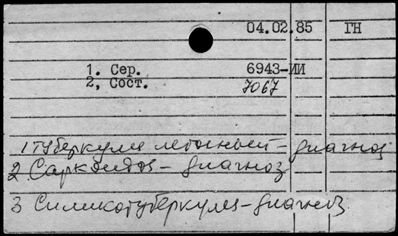 04.02.85 ГН
1. Сер. 6943-ИИ
2, Сост. 7067
1 туберкулез легочный - диагноз
2 Саркоидоз - диагноз
3 Силикотуберкулез - диагноз